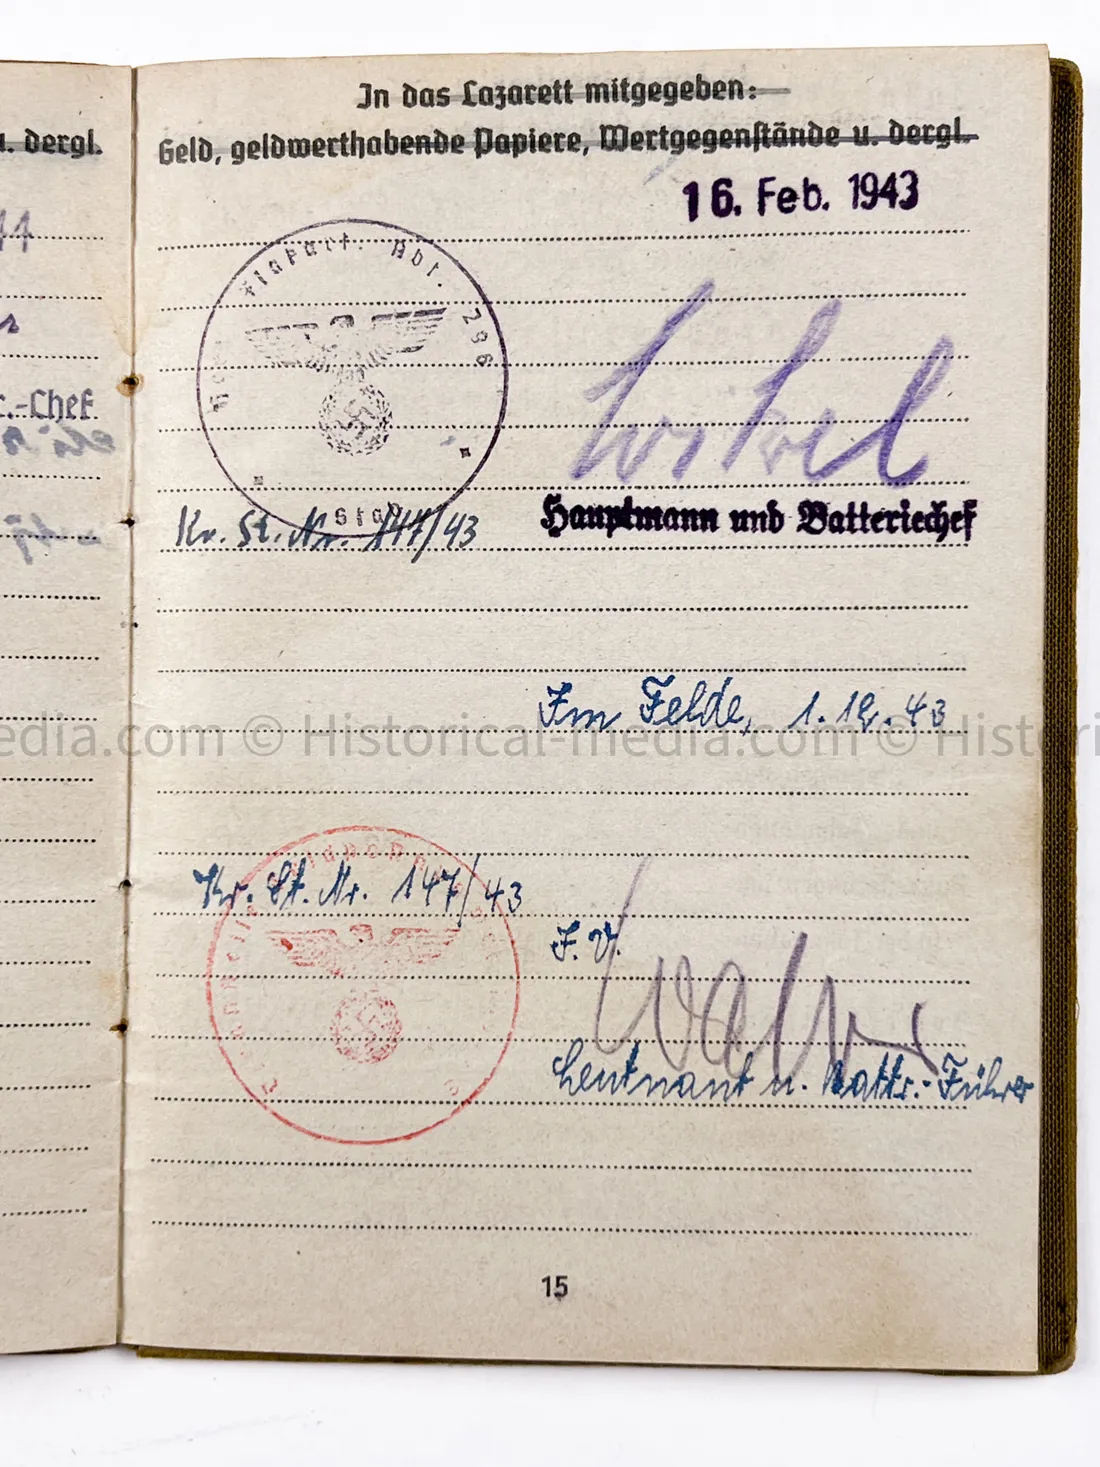 u. dergl.
In das Lazarett mitgegeben:
Geld, geldwerthabende Papiere, Wertgegenstände u. dergl.
16. Feb. 1943
Flakart. Abt. 296
Stab
-Chef
Kr. St. Nr. 147/43
Hauptmann und Batteriechef
Im Felde, 1.12.43
Kr. St. Nr. 147/43
I. V.
Leutnant u. Battr.-Führer
15
edia.com © Historical-media.com © Histori